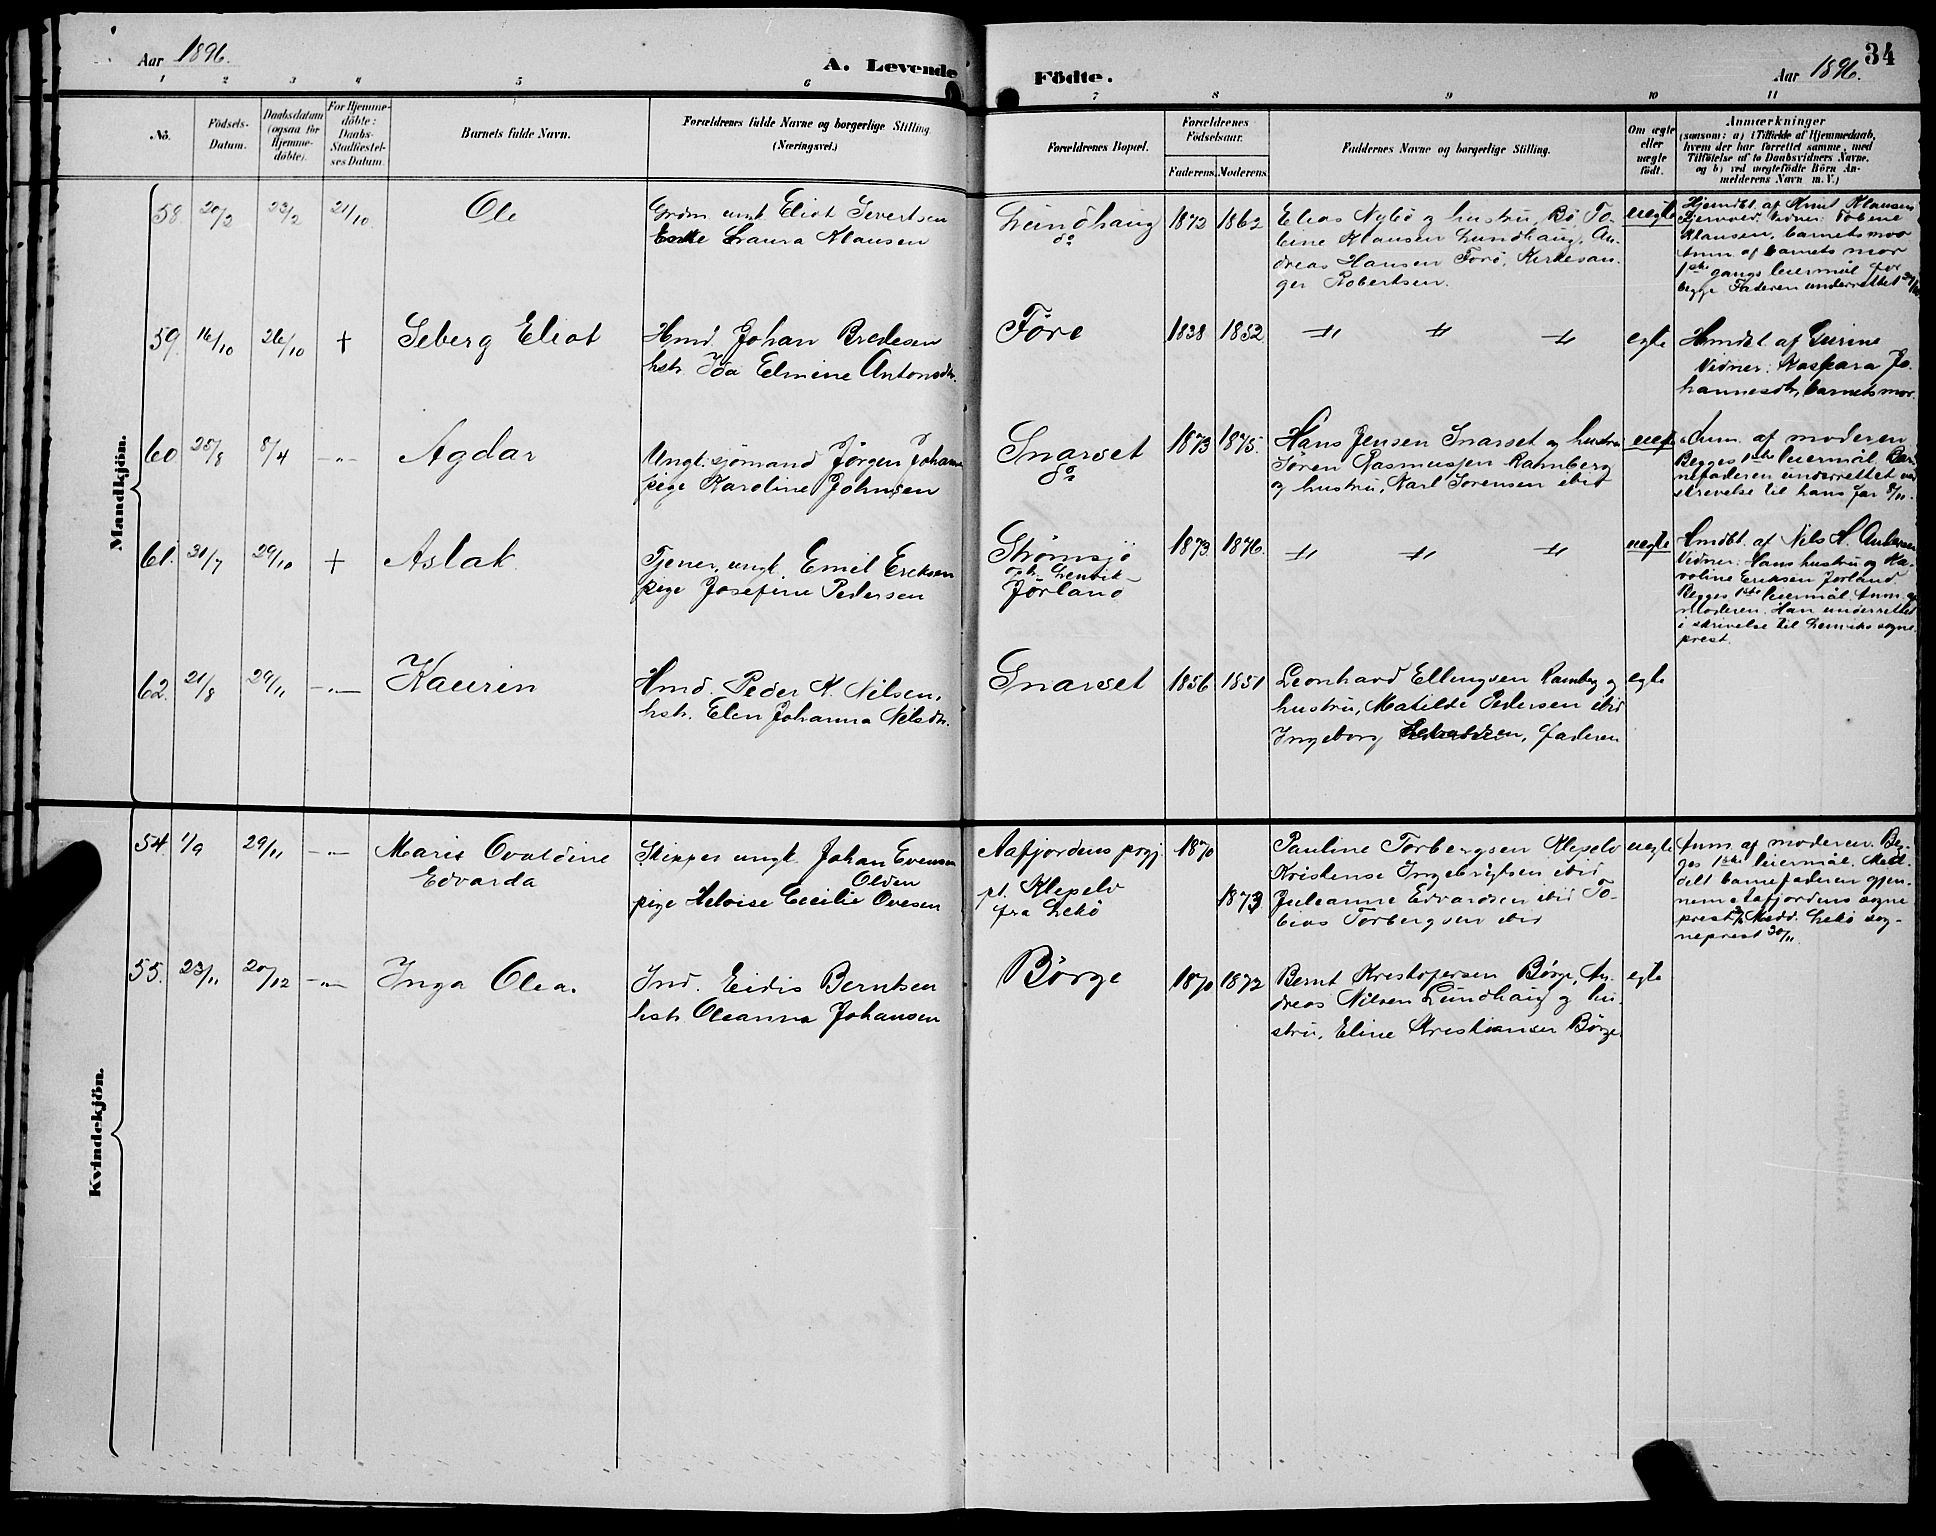 Aar 1896.
A. Levende Födte.
Aar 1896.
34
1 2 3 4 5 6 7 8 9 10 11
No.
Födsels-
Datum.
Daabsdatum
(ogsaa for
Hjemme-
döbte).
For Hjemme-
döbte:
Daabs-
Stadfæstel-
ses Datum.
Barnets fulde Navn.
Forældrenes fulde Navne og borgerlige Stilling
(Næringsvei.)
Forældrenes Bopæl.
Forældrenes
Födselsaar.
Faderens. Moderens.
Faddernes Navne og borgerlige Stilling.
Om ægte
eller
uægte
födt.
Anmærkninger
(saasom: a) i Tilfælde af Hjemmedaab,
hvem der har forrettet samme, med
Tilföielse af to Daabsvidners Navne,
og b) ved uægtefödte Börn An-
melderens Navn m. V.)
Mandkjön.
58. 20/2 23/2 21/10 Ole
Grdm. ungk. Eliot Severtsen
Laura Klausen
Lundhaug
do
1872 1862
Elias Nybö og hustru, Bö, To-
bine Klausen Lundhaug, An-
dreas Hansen Forö, Kirkesan-
ger Robertsen.
uegte
Hjemdbt. af Knut Klausen
Vidner: Tobine
Klausen, barnets mor
Anm. af barnets mor
1ste gangs leiermål for
begge Faderen underrettet
59. 16/10 26/10 + Seberg Eliot
Hmd. Johan Bredesen
hstr. Ida Elmine Antonsdtr.
Före
1838 1852
-"- -"- -"-
egte
Hmdbt. af Gurine
Vidner: Kaspara Jo-
hannesdtr, barnets mor.
60 25/8 8/4 -"- Agdar
Ungk. sjömand Jörgen Johans
pige Karoline Johnsen
Snarset
do
1873 1875.
Hans Jensen Snarset og hustru
Sören Rasmussen Ramberg
og hustru, Karl Sörensen ibid
uegte
Anm. af moderen
Begges 1ste leiermål. Bar-
nefaderen underrettet ved
skrivelse til hans far 8/11.
61. 31/7 29/10 + Aslak
Tjener, ungk. Emil Eriksen
pige Josefine Pedersen
Strömsjö
Lenvik-
Jörland
1873. 1876.
-"- -"- -"-
uegte
Hmdbt. af Nils H. Andersen
Vidner: Hans hustru og Ka-
roline Eriksen Jorland.
Begges 1ste leiermål. Anm. af
Moderen. Han underrettet
i skrivelse til Lenviks sogne-
prest.
62. 21/8 29/11 -"- Kaurin
Hmd. Peder K. Nilsen,
hstr. Elen Johanna Nilsdtr.
Snarset
1856 1851
Leonhard Ellingsen Ramberg og
hustru, Matilde Pedersen ibid
Ingeborg faderen
egte
Kvindekjön.
54. 1/9 29/11 -"- Marie Ovaldine
Edvarda
Skipper ungk. Johan Evensen
Olden
pige Heloise Cecilie Ovesen
Aafjordens prgj.
pt. Klepelv
fra Lekö
1870
1873
Pauline Torbergsen Klepelv
Kristense Ingebrigtsen ibid
Juleanne Edvardsen ibid To-
bias Torbergsen ibid
uegte
Anm. af moderen. Beg-
ges 1ste leiermål. Med-
delt barnefaderen gjen-
nem Aafjordens sogne
prest Medd. Lekö sog-
neprest 30/11.
55. 23/11 20/12 -"- Inga Olea.
Ind. Eidis Berntsen
hstr. Oleanna Johansen
Börge
1870 1872
Bernt Kristofersen Börge, An-
dreas Nilsen Lundhaug og hu-
stru, Eline Kristiansen Börge.
egte